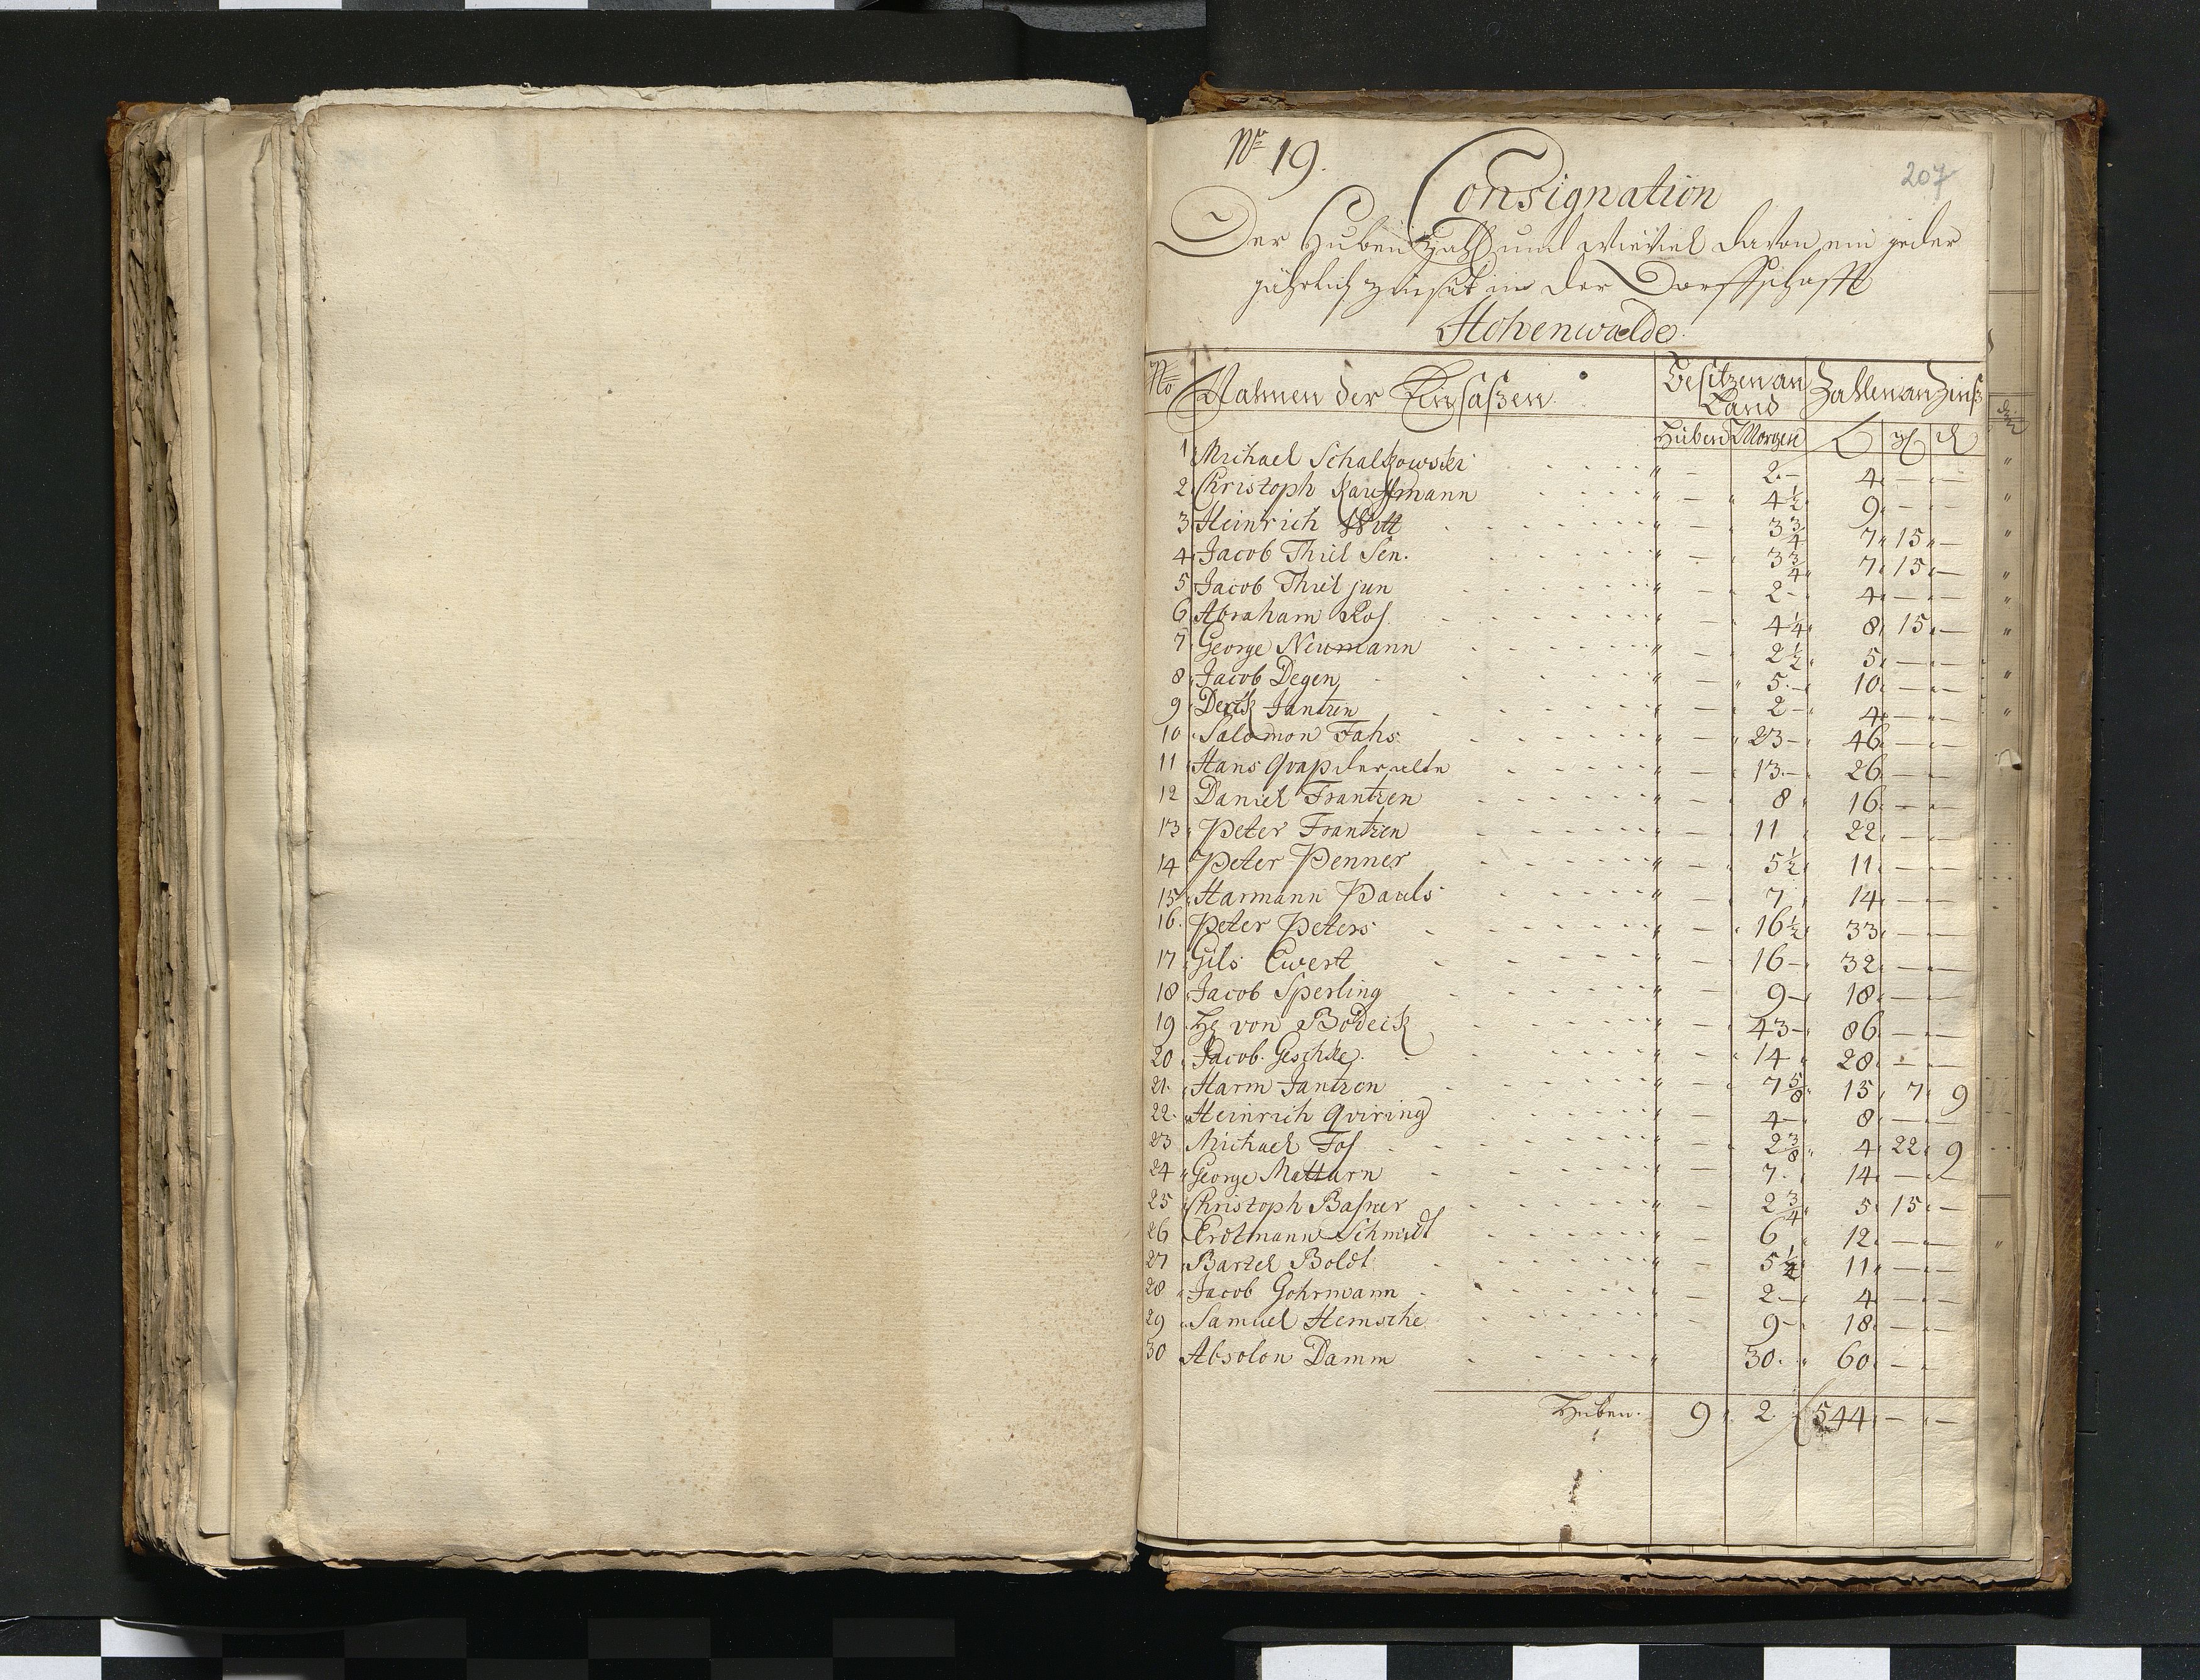 No 19.
207
Consignation
Der Huben Zahl und wieviel davon ein jeder
jährlich zinset in der Dorffschafft
Hohenwalde.
No Nahmen der Einsaßen. Besitzen an Land Zahlen an Zinß
Huben Morgen
1 Michael Schalkowski " — 2 — 4 — —
2 Christoph Kauffmann " — 4½ 9 — —
3 Heinrich Witt " — 3¾ 7 15 —
4 Jacob Thiel Sen. " — 3¾ 7 15 —
5 Jacob Thiel jun " — 2 — 4 — —
6 Abraham Ros " — 4¼ 8 15 —
7 George Neumann " — 2½ 5 — —
8 Jacob Degen " — 5 — 10 — —
9 Derck Jantzen " — 2 — 4 — —
10 Salomon Fahs " — 23 — 46 — —
11 Hans Qvap der alte " — 13 — 26 — —
12 Daniel Frantzen " — 8 16 — —
13 Peter Frantzen " — 11 22 — —
14 Peter Penner " — 5½ 11 — —
15 Harmann Pauls " — 7 14 — —
16 Peter Peters " — 16½ 33 — —
17 Gils Ewert " — 16 — 32 — —
18 Jacob Sperling " — 9 — 18 — —
19 H. von Bodeck " — 43 — 86 — —
20 Jacob Geschke " — 14 28 — —
21 Harm Jantzen " — 7⅝ 15 7 9
22 Heinrich Qviring " — 4 — 8 — —
23 Michael Fos " — 2⅜ 4 22 9
24 George Mattarn " — 7 14 — —
25 Christoph Basner " — 2¾ 5 15 —
26 Erdtmann Schmidt " — 6 12 — —
27 Bartel Boldt " — 5½ 11 — —
28 Jacob Gohrmann — 2 — 4 — —
29 Samuel Hemsche — 9 — 18 — —
30 Absolon Damm " 30 60 — —
Huben. 9 2 544 — —